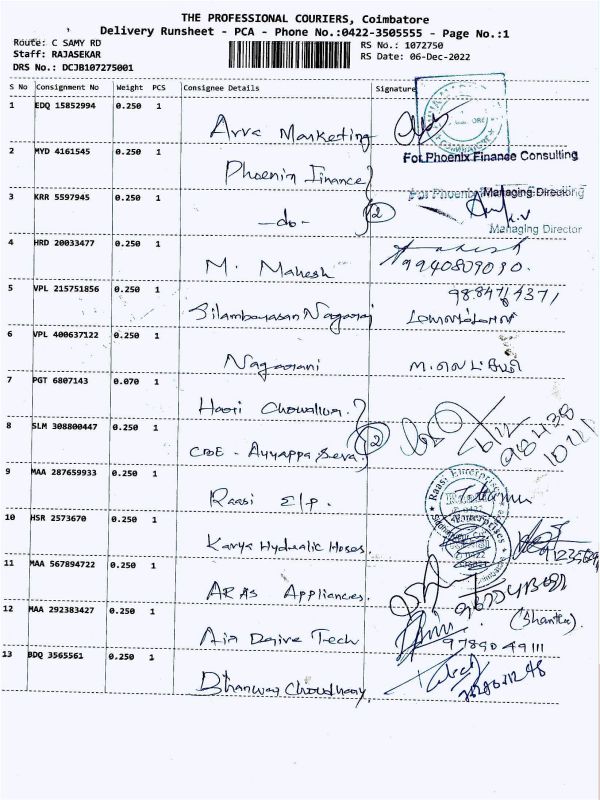 THE PROFESSIONAL COURIERS, Coimbatore
Delivery Runsheet - PCA - Phone No.:0422-3505555 - Page No.:1
Route: C SAMY RD
Staff: RAJASEKAR
DRS No.: DCJB107275001
RS No.: 1072750
RS Date: 06-Dec-2022
S No Consignment No Weight PCS Consignee Details Signature
1 EDQ 15852994 0.250 1
Arva Marketing
For Phoenix Finance Consulting
2 MYD 4161545 0.250 1
Phoenix Finance
For Phoenix Managing Director
3 KRR 5597945 0.250 1
-do- 2
Managing Director
4 HRD 20033477 0.250 1
M. Mahesh 9940809090.
5 VPL 215751856 0.250 1
9884714371
Silambarasan Nagaraj
6 VPL 400637122 0.250 1
Nagarani
7 PGT 6807143 0.070 1
Hari
8 SLM 308800447 0.250 1
2 6/12
CBE - Ayyappa Seva.
9 MAA 287659933 0.250 1
Raasi Enterprises
Raasi E/p.
10 HSR 2573670 0.250 1
Kavya Hydralic Hoses.
11 MAA 567894722 0.250 1
ARAS Appliances.
12 MAA 292383427 0.250 1
(Shanthi).
Air Drive Tech 9789049111
13 BDQ 3565561 0.250 1
Bhanwar Choudhary